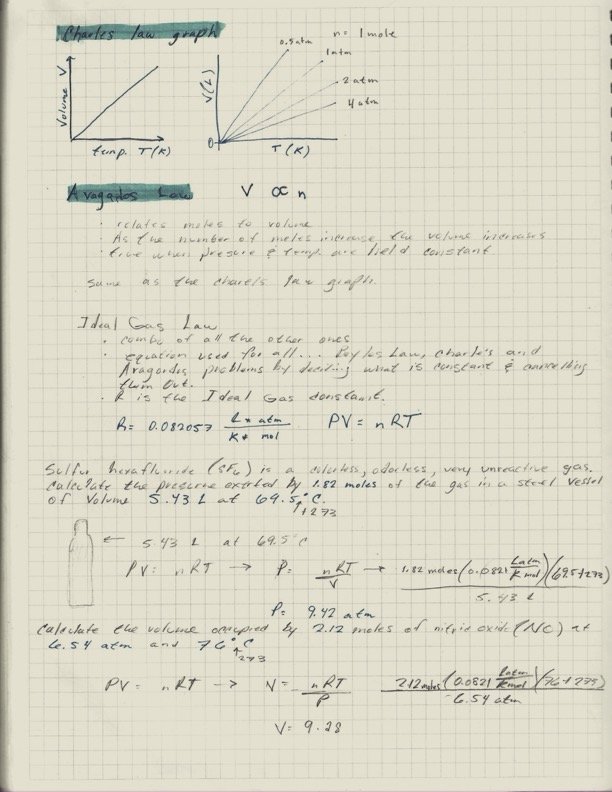 Charles law graph
Volume V
temp. T(K)
V(L)
0
T(K)
0.5 atm
1 atm
2 atm
4 atm
n = 1 mole
Avagados Law V ∝ n
· relates moles to volume
· As the number of moles increase the volume increases
· true when pressure & temp. are held constant
same as the charels law graph.
Ideal Gas Law
· combo of all the other ones
· equation used for all... Boyles Law, Charle's and
Avagordos problems by deciding what is constant & cancelling
them out.
· R is the Ideal Gas constant.
R = 0.082057 L * atm / K * mol PV = nRT
Sulfur hexafluoride (SF6) is a colorless, odorless, very unreactive gas.
Calculate the pressure exerted by 1.82 moles of the gas in a steel vessel
of Volume 5.43 L at 69.5°C.
+273
← 5.43 L at 69.5°C
PV = nRT → P = nRT / V → 1.82 moles (0.0821 Latm / K mol)(69.5+273) / 5.43 L
P = 9.42 atm
Calculate the volume occupied by 2.12 moles of nitric oxide (NO) at
6.54 atm and 76°C
+273
PV = nRT → V = nRT / P 2.12 moles (0.0821 Latm / Kmol)(76+273) / 6.54 atm
V = 9.28